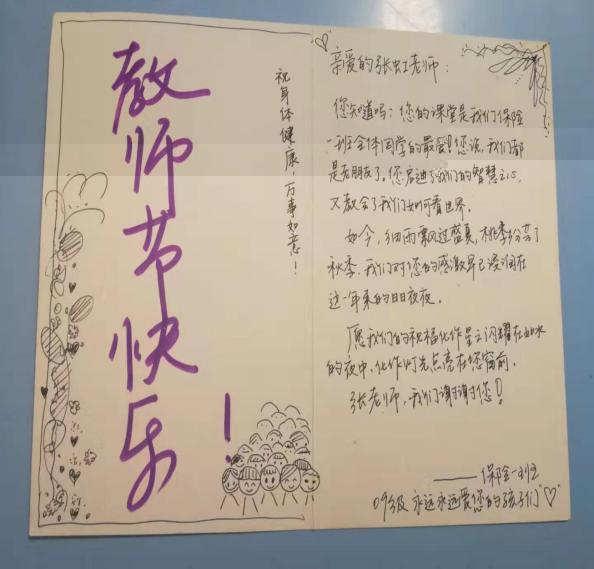 教师节快乐!
祝身体健康，万事如意!
亲爱的张虹老师:
您知道吗:您的课堂是我们保险
一班全体同学的最爱!您说,我们都
是老朋友了。您启迪了我们的智慧之心,
又教会了我们如何看世界。
如今,细雨飘过盛夏,桃李分享了
秋季,我们对您的感激早已浸润在
这一年来的日日夜夜。
愿我们的祝福化作星云闪耀在如水
的夜中,化作灯光点亮在您窗前。
张老师,我们谢谢您!
——保险一班
09级 永远永远爱您的孩子们